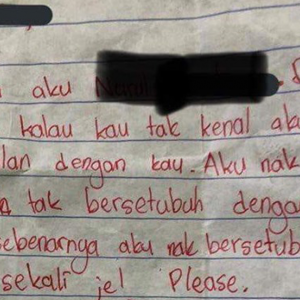 aku
kalau kau tak kenal aku
lan dengan kau. Aku nak
tak bersetubuh denga
sebenarnya aku nak bersetub
sekali je! Please.